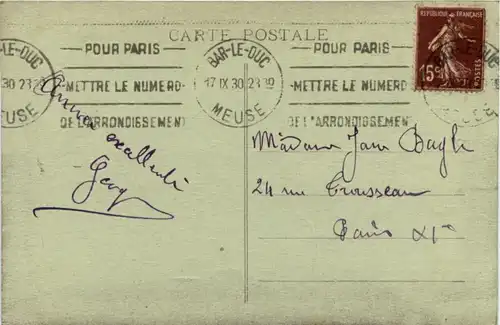 CARTE POSTALE
BAR-LE-DUC
30 23
MEUSE
POUR PARIS
METTRE LE NUMERO
DE L'ARRONDISSEMENT
BAR-LE-DUC
17 IX 30 23
MEUSE
POUR PARIS
METTRE LE NUMERO
DE L'ARRONDISSEMENT
REPUBLIQUE FRANÇAISE
15c
POSTES
excellente
Madame Jane Bayle
24 rue Trousseau
Paris XIe